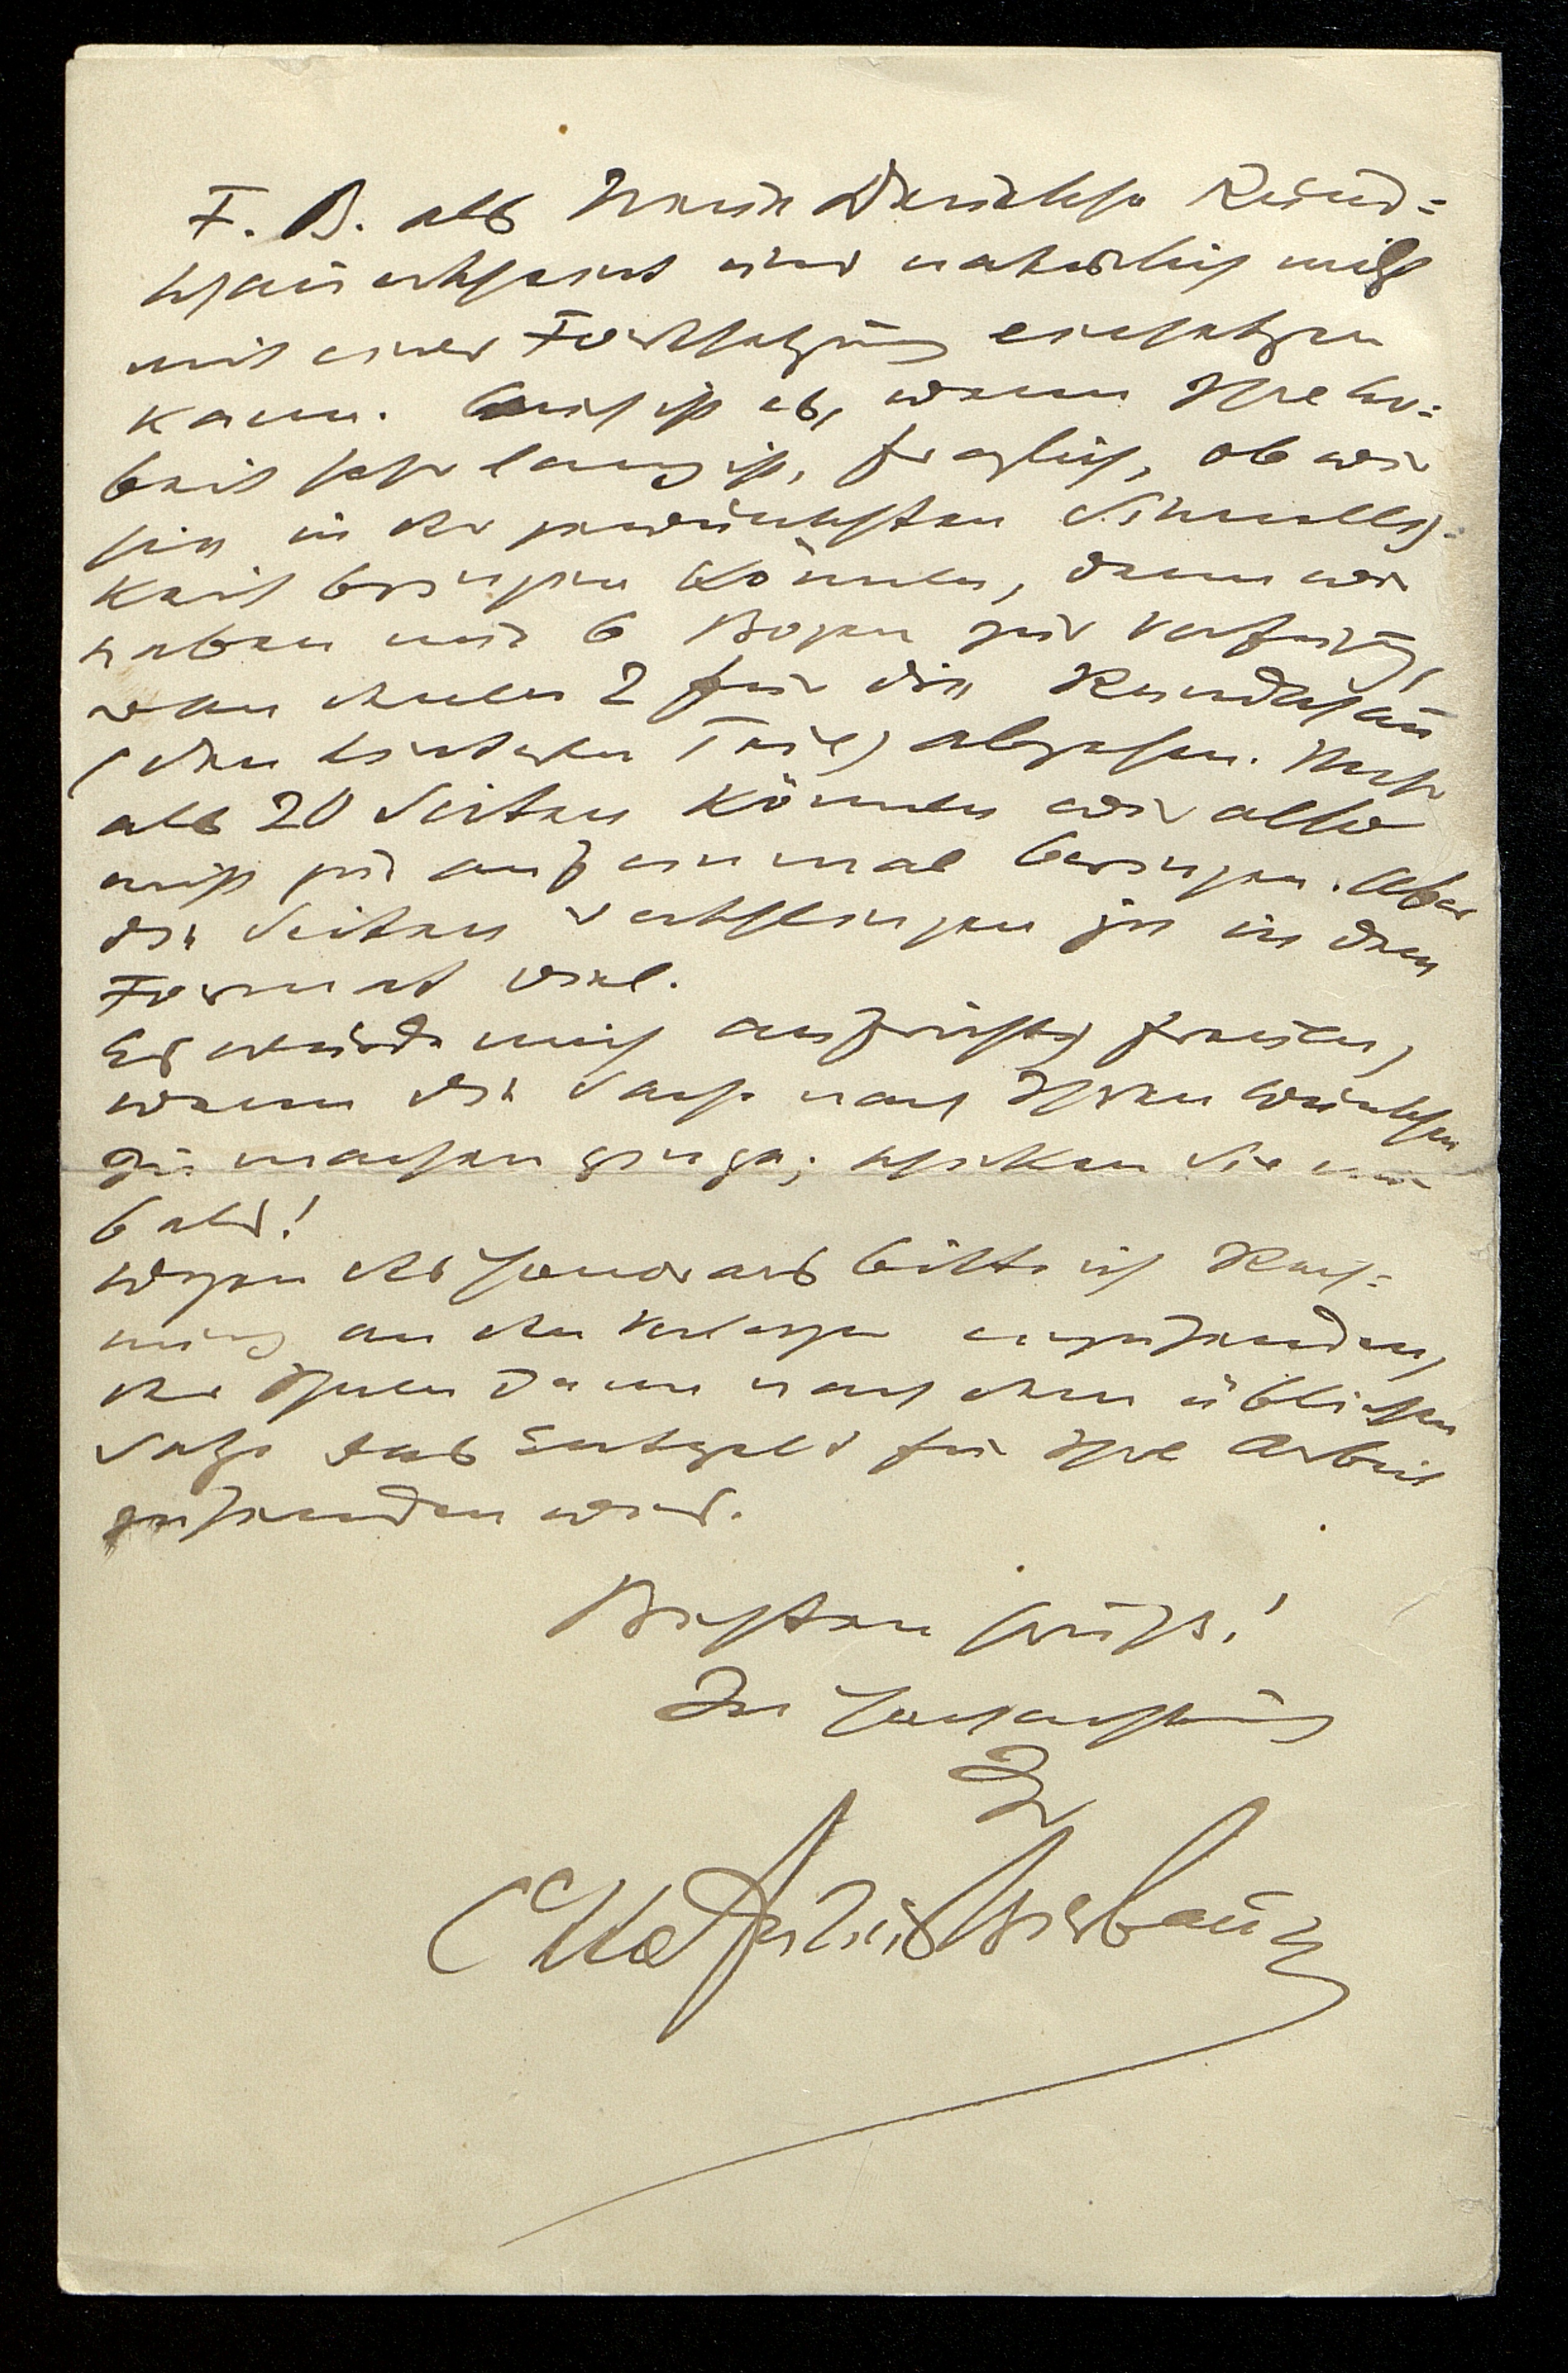 F. B. als Neue Deutsche Rund=
schau erscheint und natürlich nicht
mit einer Fortsetzung einsetzen
kann. Auch ist es, wenn Ihre Ar=
beit sehr lang ist, fraglich, ob wir
sie in der gewünschten Schnellig=
keit bringen können, denn wir
haben nur 6 Bogen zur Verfügung,
von denen 2 für die Rundschau
(den hinteren Teil) abgehen. Mehr
als 20 Seiten können wir also
nicht gut auf einmal bringen. Aber
die Seiten verschlingen ja in dem
Format viel.
Es würde mich aufrichtig freuen,
wenn die Sache nach Ihren Wünschen
zu machen ginge; schicken Sie nur
bald!
Wegen des Honorars bitte ich Rech=
nung an den Verleger einzusenden,
der Ihnen dann nach dem üblichen
Satze das Entgelt für Ihre Arbeit
zusenden wird.
Besten Gruß!
In Hochachtung
Ihr
Otto Julius Bierbaum